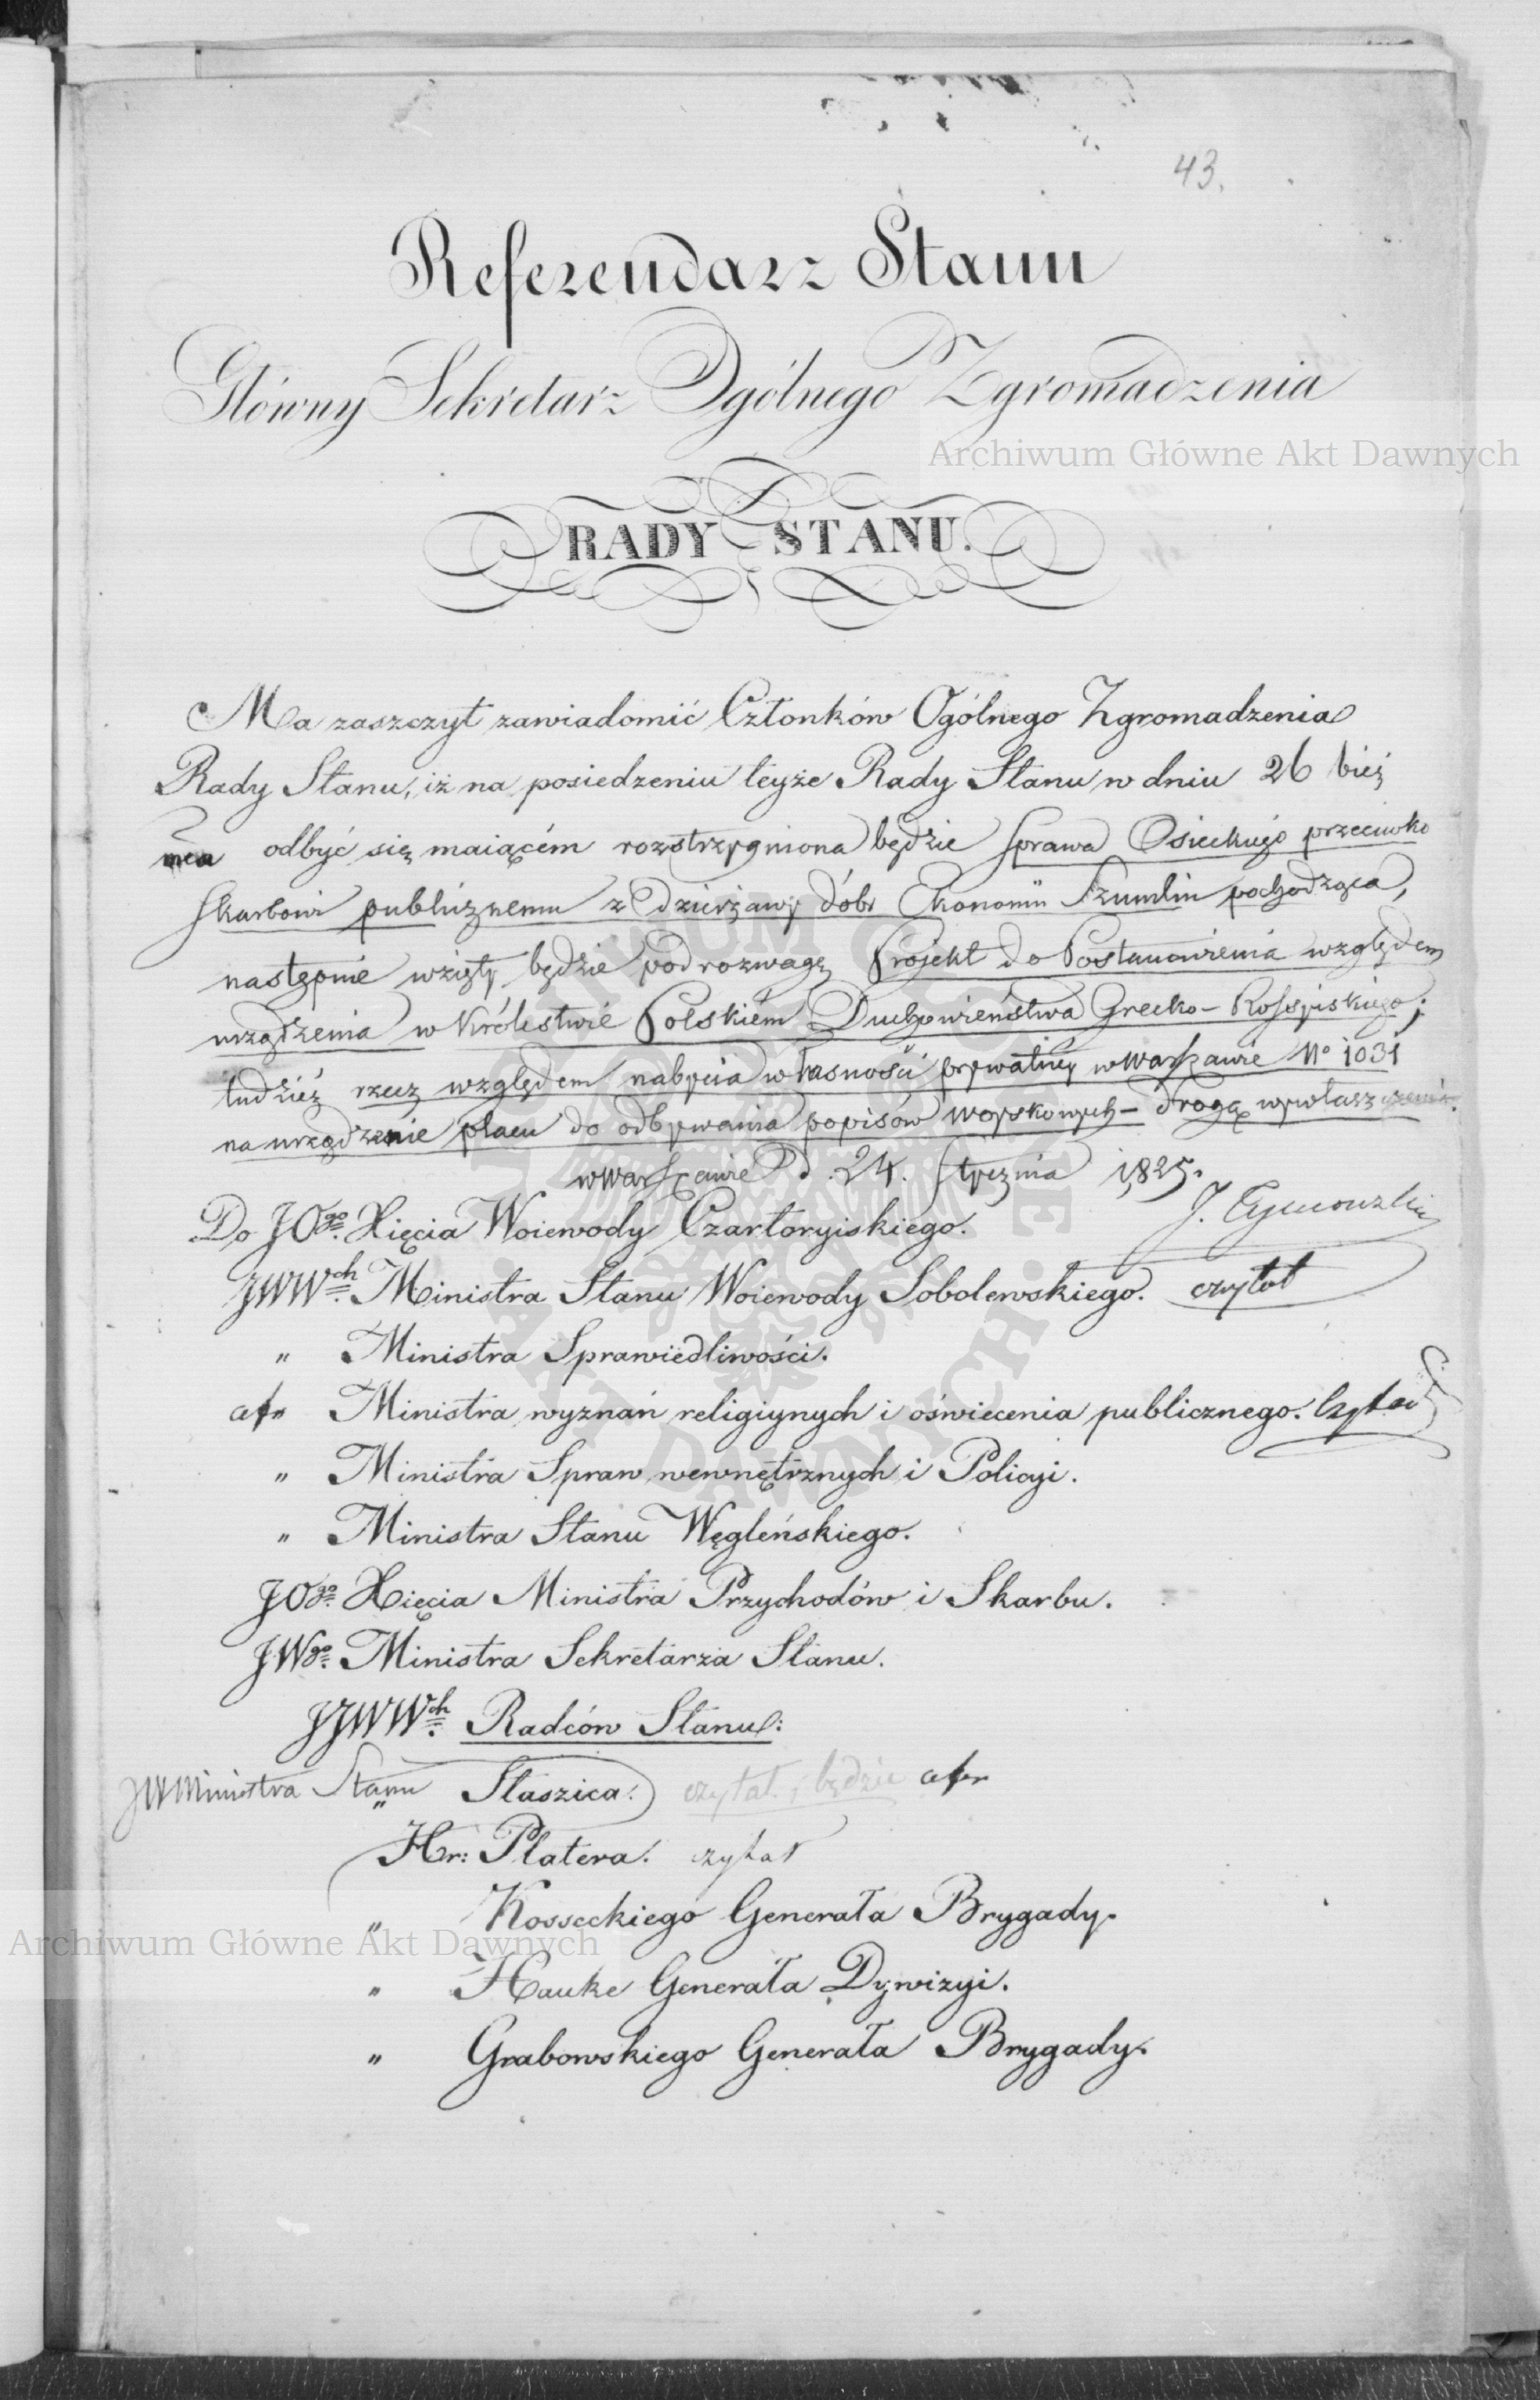 43.
Referendarz Stanu
Główny Sekretarz Ogólnego Zgromadzenia
Archiwum Główne Akt Dawnych
RADY STANU.
Ma zaszczyt zawiadomić Członków Ogólnego Zgromadzenia
Rady Stanu, iż na posiedzeniu teyże Rady Stanu w dniu 26 bież
mca odbyć się maiącém rozstrzygniona będzie Sprawa Osieckiego przeciwko
Skarbowi publicznemu z dzierżawy dóbr Ekonomii Szumlin pochodząca,
następnie wzięty będzie pod rozwagę Projekt do Postanowienia względem
urządzenia w Królestwie Polskiém Duchowieństwa Grecko-Rossyiskiego;
tudzież rzecz względem nabycia własności prywatney w Warszawie No 1031
na urządzenie placu do odbywania popisów woyskowych - drogą wywłaszczenia.
w Warszawie d. 24. Stycznia 1825.
J. Tymowski
Do JOgo. Xięcia Woiewody Czartoryiskiego.
JWWch. Ministra Stanu Woiewody Sobolewskiego. czytał
" Ministra Sprawiedliwości.
" Ministra wyznań religiynych i oświecenia publicznego. Czytał
" Ministra Spraw wewnętrznych i Policyi.
" Ministra Stanu Węgleńskiego.
JOgo. Xięcia Ministra Przychodów i Skarbu.
JWgo. Ministra Sekretarza Stanu.
JJWWch. Radców Stanu:
JW Ministra Stanu " Staszica. czytał i będzie
Hr: Platera. czytał
" Kosseckiego Generała Brygady.
Archiwum Główne Akt Dawnych
" Hauke Generała Dywizyi.
" Grabowskiego Generała Brygady.